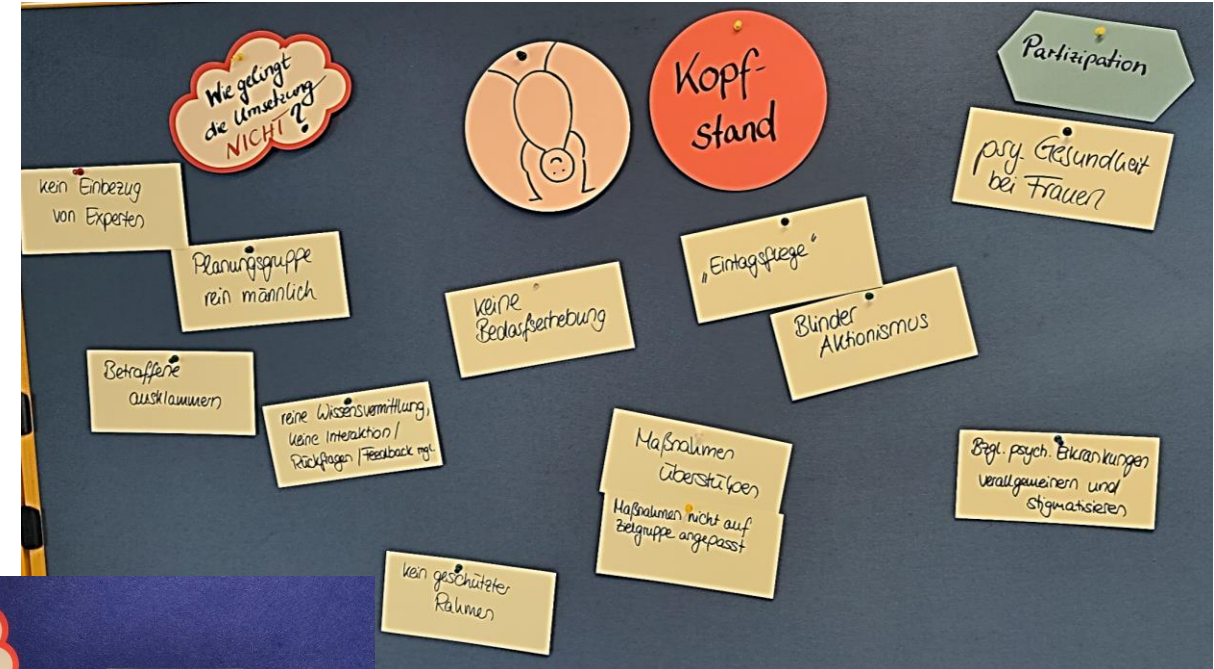 Wie gelingt
die Umsetzung
NICHT?
Kopf-
stand
Partizipation
psy. Gesundheit
bei Frauen
kein Einbezug
von Experten
Planungsgruppe
rein männlich
keine
Bedarfserhebung
„Eintagsfliege“
Blinder
Aktionismus
Betroffene
ausklammern
reine Wissensvermittlung,
keine Interaktion/
Rückfragen/Feedback mgl.
Maßnahmen
überstülpen
Maßnahmen nicht auf
Zielgruppe angepasst
Bzgl. psych. Erkrankungen
verallgemeinern und
stigmatisieren
kein geschützter
Rahmen